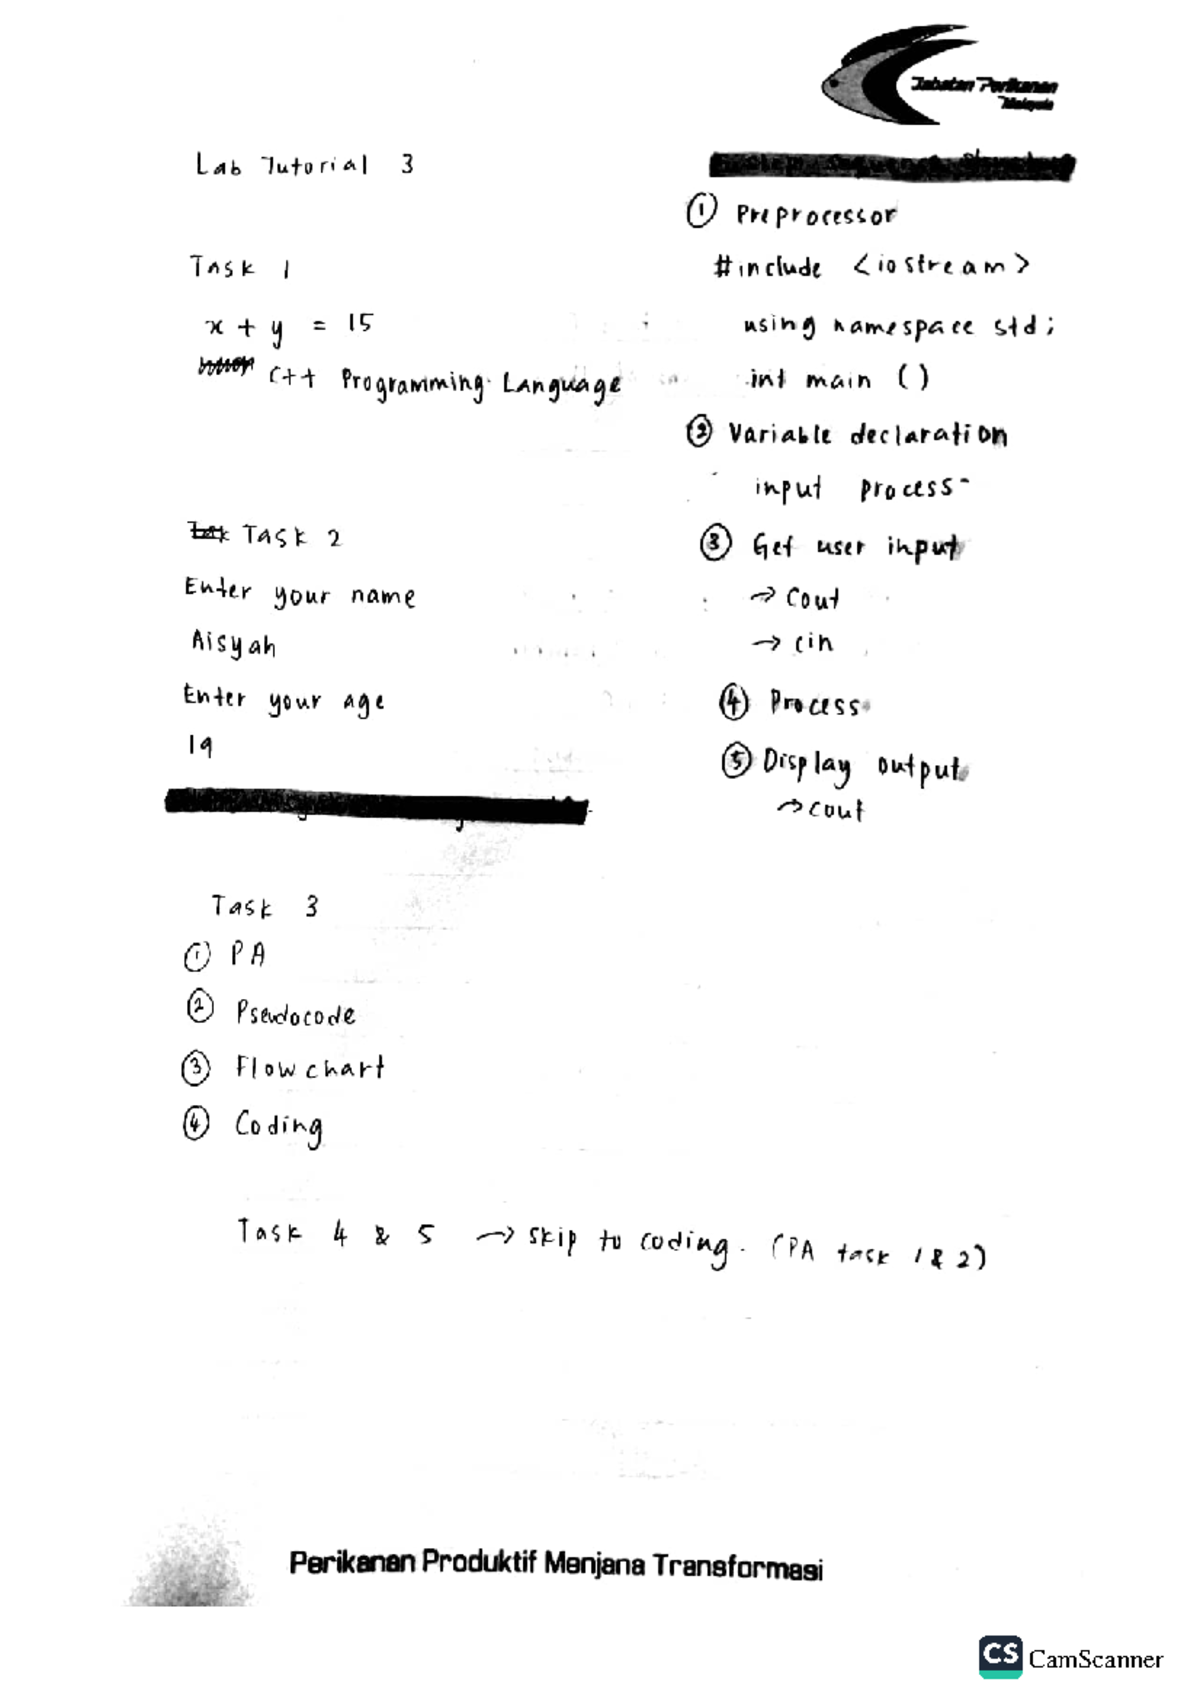 Jabatan Perikanan
Malaysia
Lab Tutorial 3
Task 1
x + y = 15
C++ Programming Language
Task 2
Enter your name
Aisyah
Enter your age
19
① Preprocessor
#include <iostream>
using namespace std;
int main ()
② Variable declaration
input process
③ Get user input
→ Cout
→ cin
④ Process
⑤ Display output
→ cout
Task 3
① PA
② Pseudocode
③ Flowchart
④ Coding
Task 4 & 5 → skip to coding. (PA task 1 & 2)
Perikanan Produktif Menjana Transformasi
CS CamScanner